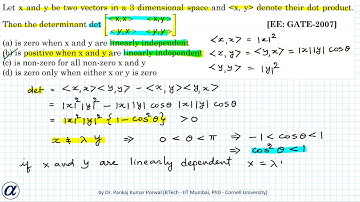 Let x and y be two vectors in a 3 dimensional space and <x, y> denote their dot product.
Then the determinant det [ <x,x> <x,y>
<y,x> <y,y> ] [EE: GATE-2007]
(a) is zero when x and y are linearly independent
(b) is positive when x and y are linearly independent
(c) is non-zero for all non-zero x and y
(d) is zero only when either x or y is zero
<x,x> = |x|²
<x,y> = <y,x> = |x||y| cosθ
<y,y> = |y|²
det = <x,x><y,y> - <y,x><y,x>
= |x|²|y|² - |x||y| cosθ |x||y| cosθ
= |x|²|y|² {1 - cos²θ} > 0
x ≠ λ y ⇒ 0 < θ < π ⇒ -1 < cosθ < 1
⇒ cos²θ < 1
if x and y are linearly dependent x = λ
by Dr. Pankaj Kumar Porwal (BTech - IIT Mumbai, PhD - Cornell University)
α